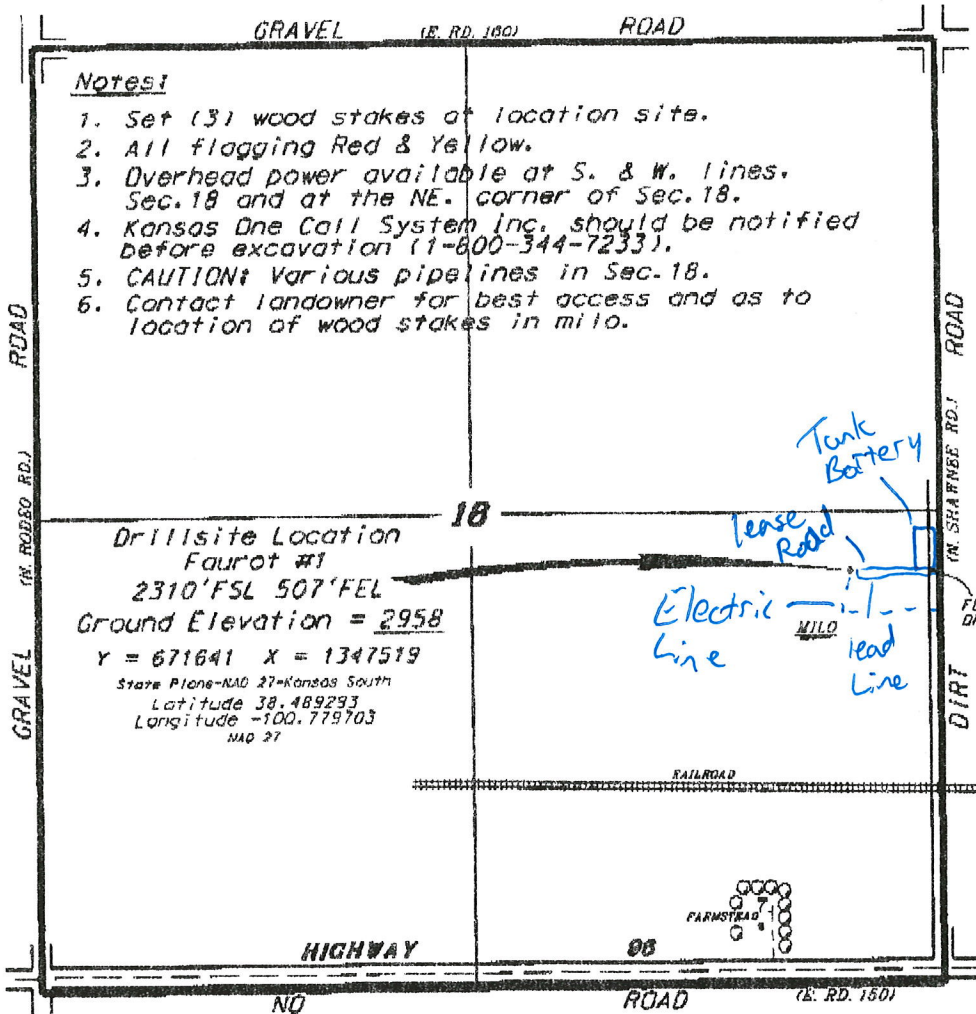 GRAVEL (E. RD. 160) ROAD
Notes:
1. Set (3) wood stakes at location site.
2. All flagging Red & Yellow.
3. Overhead power available at S. & W. lines.
Sec.18 and at the NE. corner of Sec.18.
4. Kansas One Call System Inc. should be notified
before excavation (1-800-344-7233).
5. CAUTION: Various pipelines in Sec.18.
6. Contact landowner for best access and as to
location of wood stakes in milo.
GRAVEL (N. RODEO RD.) ROAD
DIRT (N. SHAWNEE RD.) ROAD
Tank
Battery
18
Lease
Road
Drillsite Location
Faurot #1
2310'FSL 507'FEL
Ground Elevation = 2958
Y = 671641 X = 1347519
State Plane-NAD 27-Kansas South
Latitude 38.489293
Longitude -100.779703
NAD 27
Electric
Line
MILO
lead
Line
RAILROAD
FARMSTEAD
HIGHWAY 96
NO ROAD (E. RD. 150)